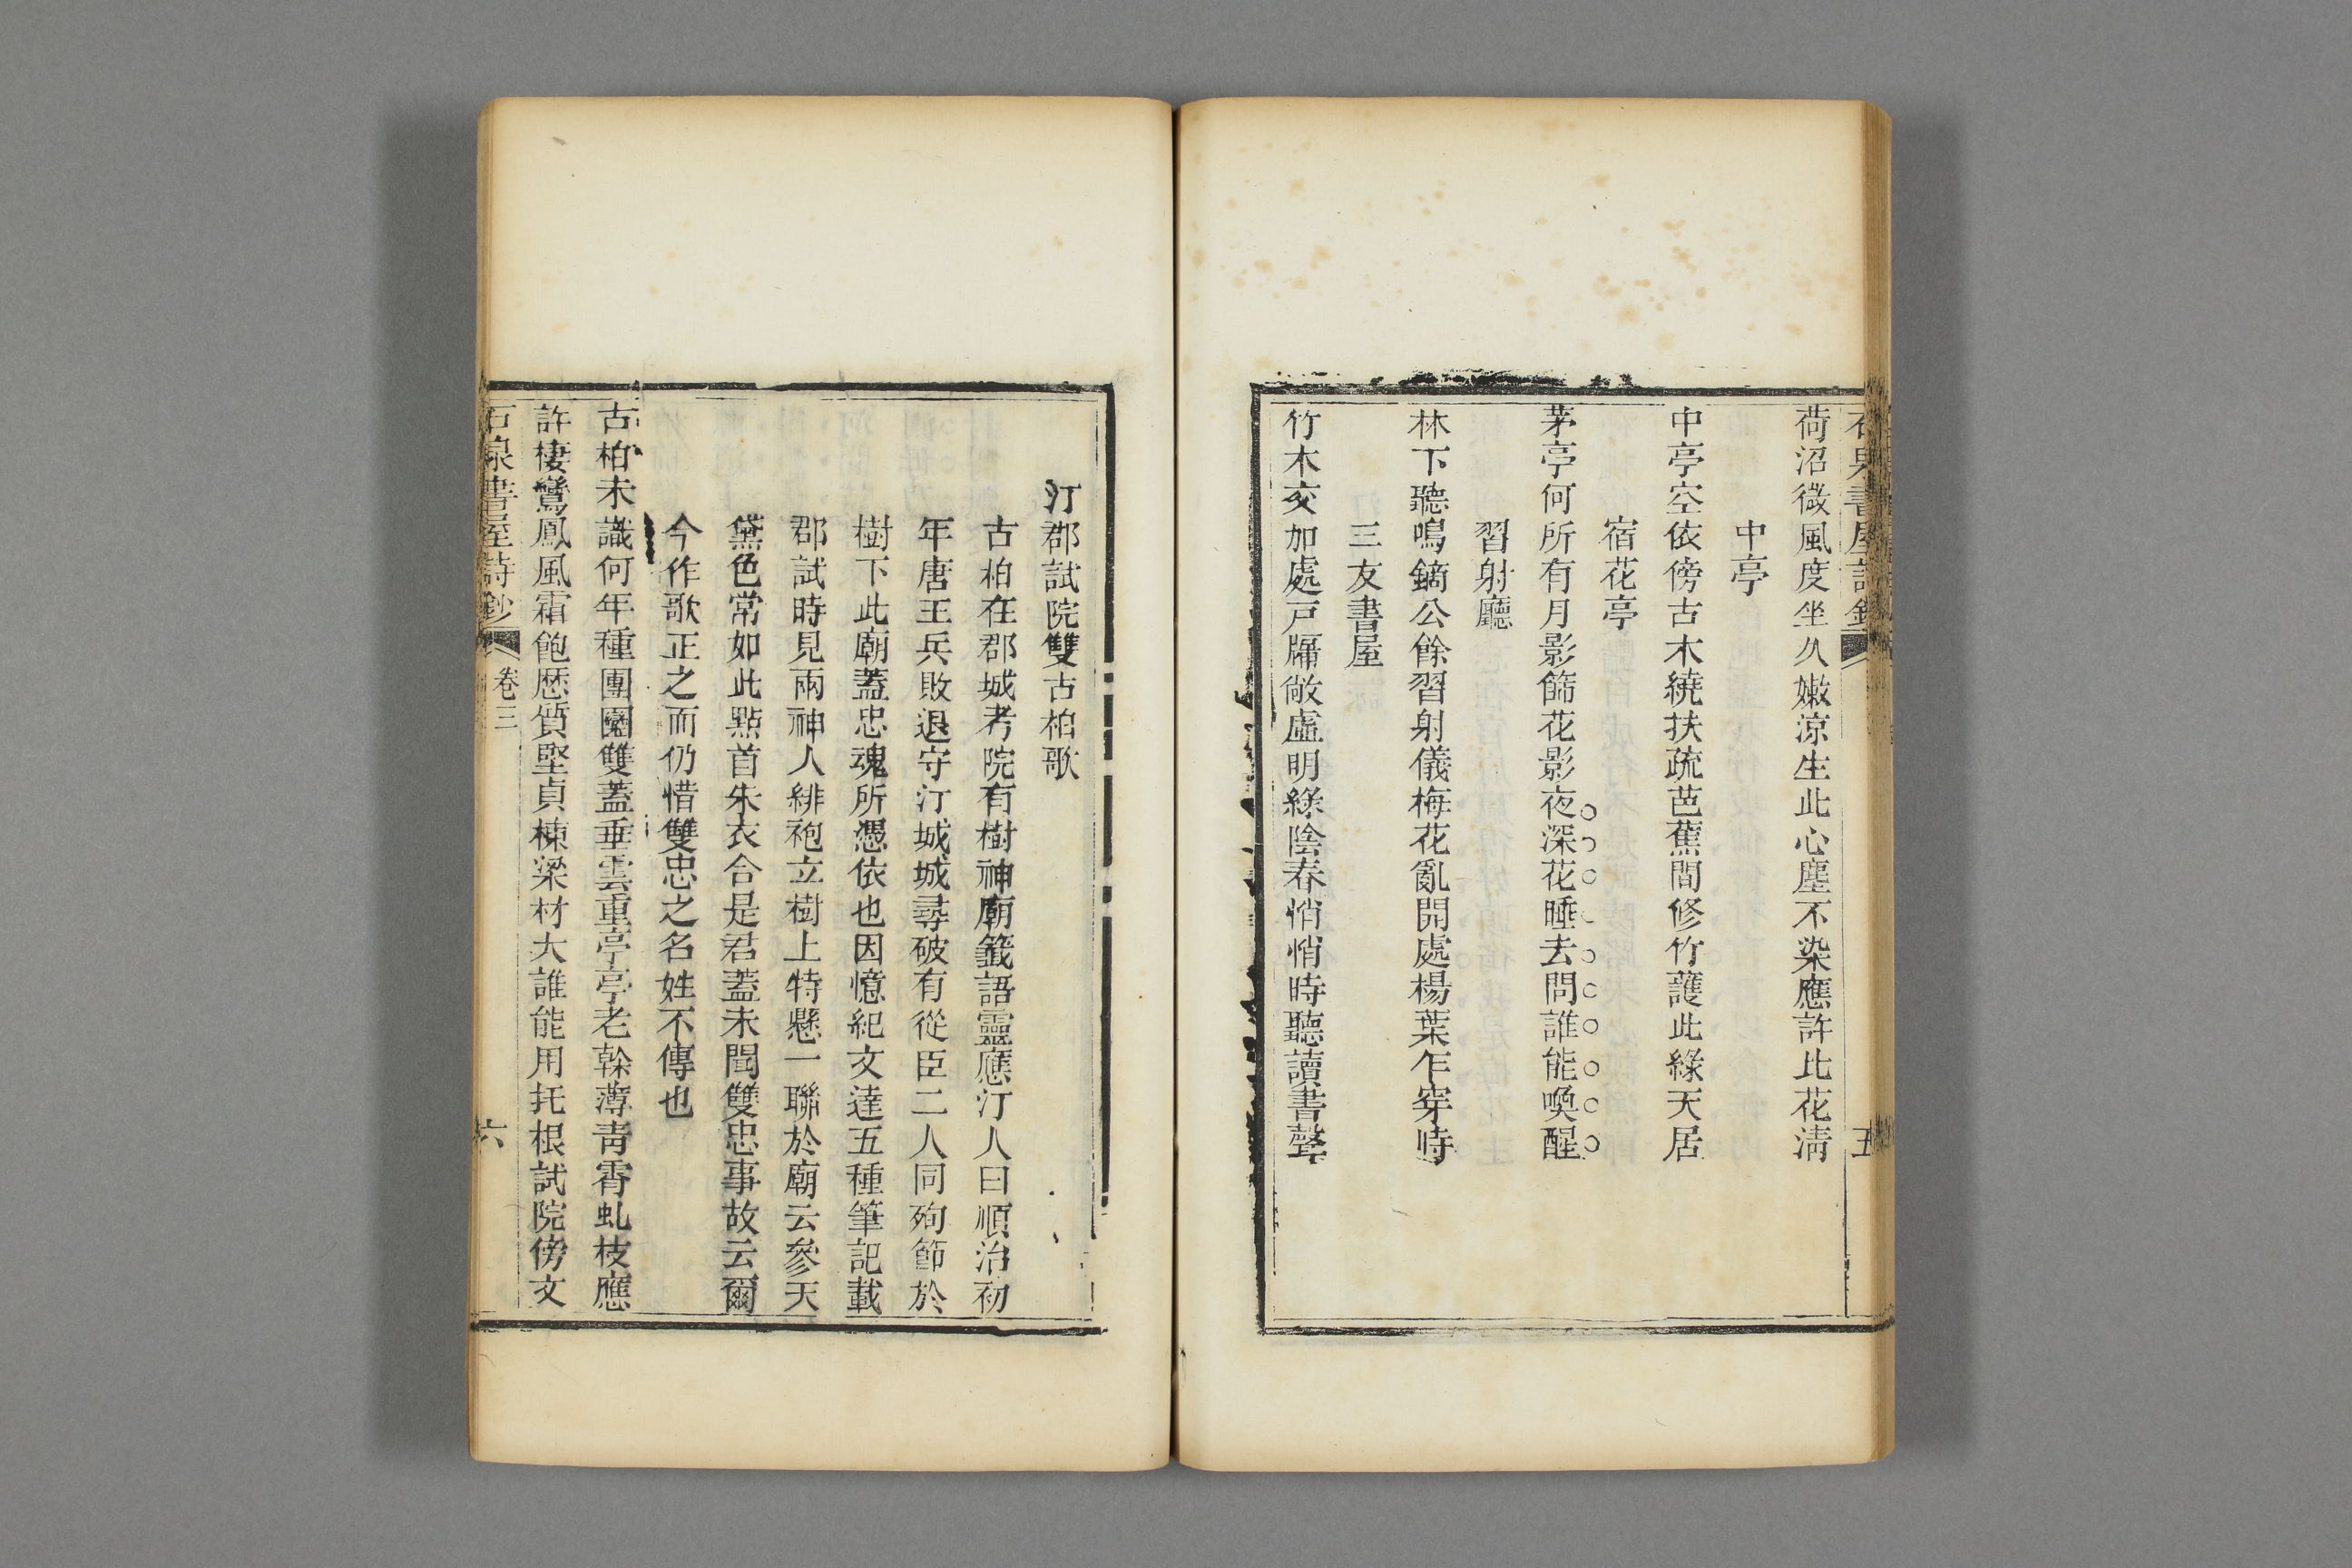 石泉書屋詩鈔
五
荷沼微風度坐久嫩涼生此心塵不染應許比花淸
中亭
中亭空依傍古木繞扶疏芭蕉間修竹護此綠天居
宿花亭
茅亭何所有月影篩花影夜深花睡去問誰能喚醒
習射廳
林下聽鳴鏑公餘習射儀梅花亂開處楊葉乍穿時
三友書屋
竹木交加處戸牖敞虛明綠陰春悄悄時聽讀書聲
汀郡試院雙古柏歌
古柏在郡城考院有樹神廟籤語靈應汀人曰順治初
年唐王兵敗退守汀城城尋破有從臣二人同殉節於
樹下此廟蓋忠魂所憑依也因憶紀文達五種筆記載
郡試時見兩神人緋袍立樹上特懸一聯於廟云參天
黛色常如此點首朱衣合是君蓋未聞雙忠事故云爾
今作歌正之而仍惜雙忠之名姓不傳也
古柏未識何年種團圞雙蓋垂雲重亭亭老榦薄靑霄虬枝應
許棲鸞鳳風霜飽歷質堅貞棟梁材大誰能用托根試院傍文
石泉書屋詩鈔
卷三
六